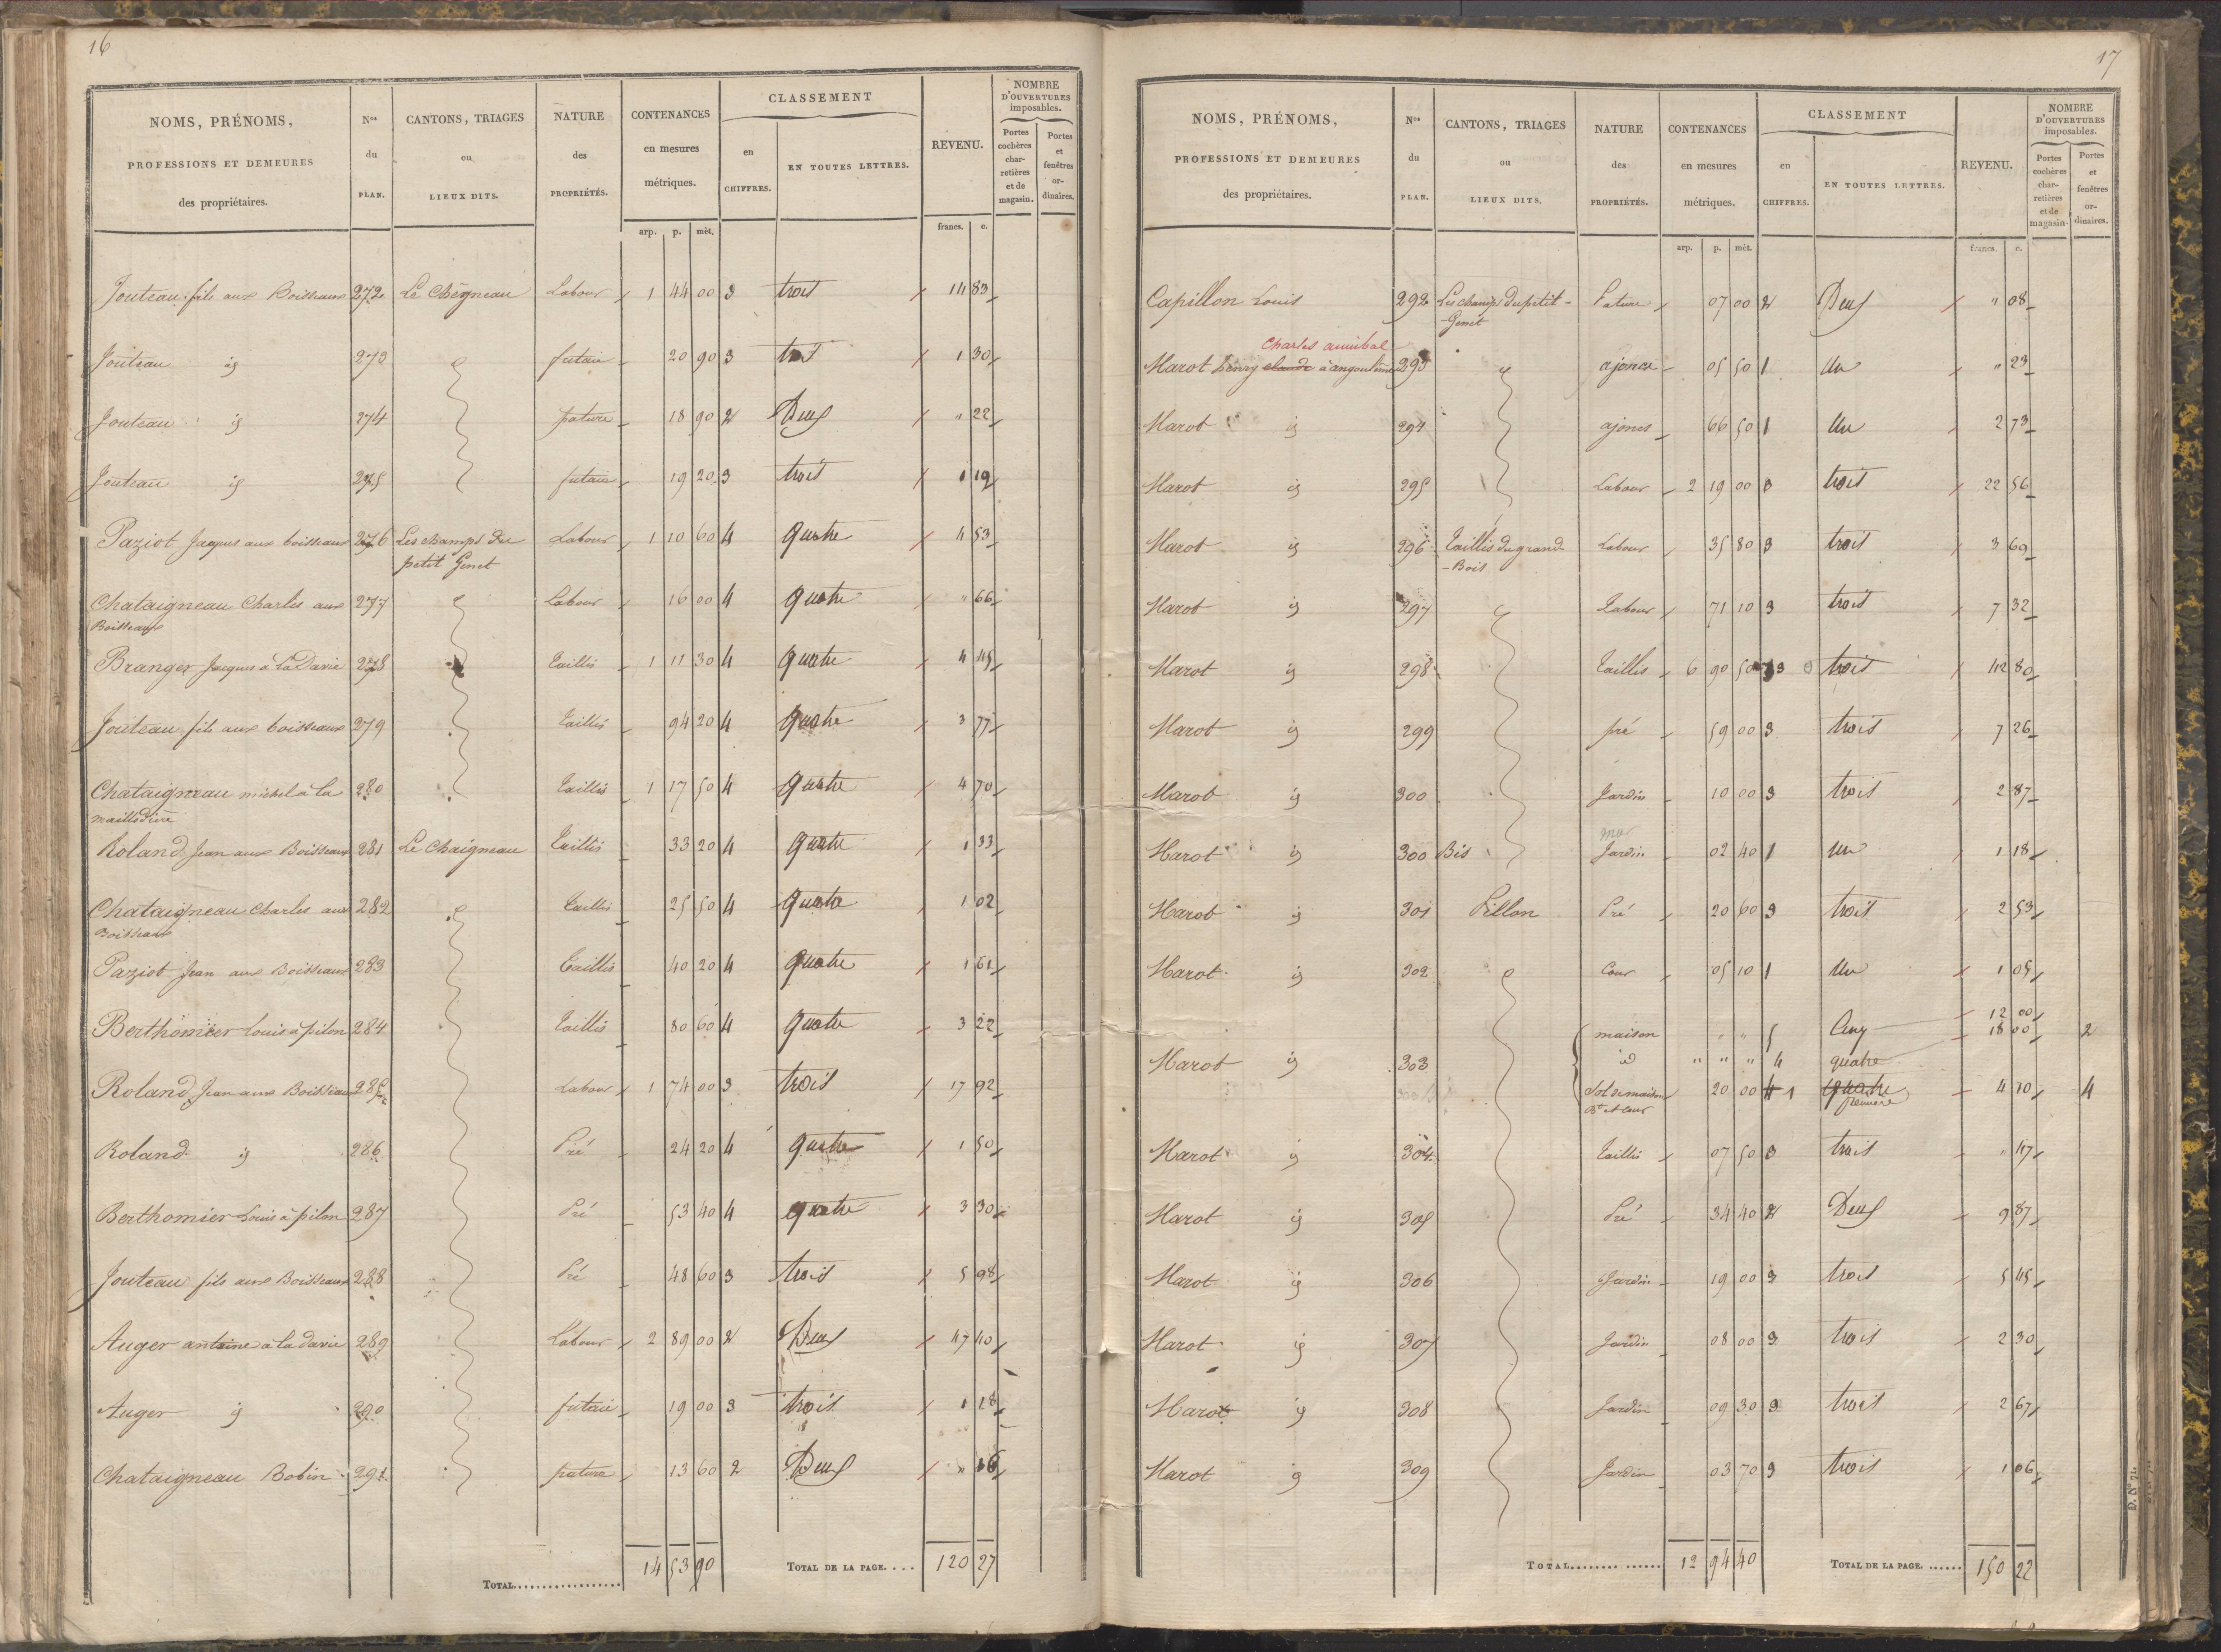 16
NOMS, PRÉNOMS, PROFESSIONS ET DEMEURES des propriétaires. | Nos du PLAN. | CANTONS, TRIAGES ou LIEUX DITS. | NATURE des PROPRIÉTÉS. | CONTENANCES en mesures métriques. | CLASSEMENT en CHIFFRES. | EN TOUTES LETTRES. | REVENU. | NOMBRE D'OUVERTURES imposables. Portes cochères charretières et de magasin. | Portes et fenêtres ordinaires.
arp. p. mèt. francs. c.
Jouteau fils aux Boisseaux 272 Le Chègneau Labour 1 44 00 3 trois 14 83
Jouteau id 273 futaie 20 90 3 trois 1 30
Jouteau id 274 pature 18 90 2 Deux " 22
Jouteau id 275 futaie 19 20 3 trois 1 19
Paziot Jacques aux boisseaux 276 Les champs du petit Genet Labour 1 10 60 4 quatre 4 53
Chataigneau Charles aux Boisseaux 277 Labour 16 00 4 quatre " 66
Branger Jacques à la Davie 278 Taillis 1 11 30 4 quatre 4 45
Jouteau fils aux boisseaux 279 Taillis 94 20 4 quatre 3 77
Chataigneau michel à la 280 Taillis 1 17 50 4 quatre 4 70
Roland Jean aux Boisseaux 281 Le Chaigneau Taillis 33 20 4 quatre 1 33
Chataigneau Charles aux Boisseaux 282 Taillis 25 50 4 quatre 1 02
Paziot Jean aux Boisseaux 283 Taillis 40 20 4 quatre 1 61
Berthomier Louis à pilon 284 Taillis 80 60 4 quatre 3 22
Roland Jean aux Boisseaux 285 Labour 1 74 00 3 trois 17 92
Roland id 286 Pré 24 20 4 quatre 1 50
Berthomier Louis à pilon 287 Pré 53 40 4 quatre 3 30
Jouteau fils aux Boisseaux 288 Pré 48 60 3 trois 5 98
Auger antoine à la davie 289 Labour 2 89 00 2 Deux 47 40
Auger id 290 futaie 19 00 3 trois 1 18
Chataigneau Bobin 291 pature 13 60 2 Deux " 16
TOTAL 14 53 90 TOTAL DE LA PAGE.... 120 27
17
NOMS, PRÉNOMS, PROFESSIONS ET DEMEURES des propriétaires. | Nos du PLAN. | CANTONS, TRIAGES ou LIEUX DITS. | NATURE des PROPRIÉTÉS. | CONTENANCES en mesures métriques. | CLASSEMENT en CHIFFRES. | EN TOUTES LETTRES. | REVENU. | NOMBRE D'OUVERTURES imposables. Portes cochères charretières et de magasin. | Portes et fenêtres ordinaires.
arp. p. mèt. francs. c.
Capillon Louis 292 Les champs du petit-Genet Pature 07 00 2 Deux " 08
Charles annibal
Marot henry claude à angoulème 293 ajoncs 05 50 1 Un " 23
Marot id 294 ajoncs 66 50 1 Un 2 73
Marot id 295 Labour 2 19 00 3 trois 22 56
Marot id 296 Taillis du grand-Bois Labour 35 80 3 trois 3 69
Marot id 297 Labour 71 10 3 trois 7 32
Marot id 298 Taillis 6 90 50 3 trois 42 80
Marot id 299 pré 59 00 3 trois 7 26
Marot id 300 Jardin 10 00 3 trois 2 87
Marot id 300 Bis Jardin 02 40 1 Un 1 18
Marot id 301 Pillon Pré 20 60 3 trois 2 53
Marot id 302 Cour 05 10 1 Un 1 05
maison " " 5 Cinq 12 00
Marot id 303 id " " " 4 quatre 18 00 2
Sol de maison Bt et cour 20 00 4 1 quatre première 4 10 4
Marot id 304 Taillis 07 50 3 trois " 47
Marot id 305 Pré 34 40 2 Deux 9 87
Marot id 306 Jardin 19 00 3 trois 5 45
Marot id 307 Jardin 08 00 3 trois 2 30
Marot id 308 Jardin 09 30 3 trois 2 67
Marot id 309 Jardin 03 70 3 trois 1 06
TOTAL 12 94 40 TOTAL DE LA PAGE. 150 22